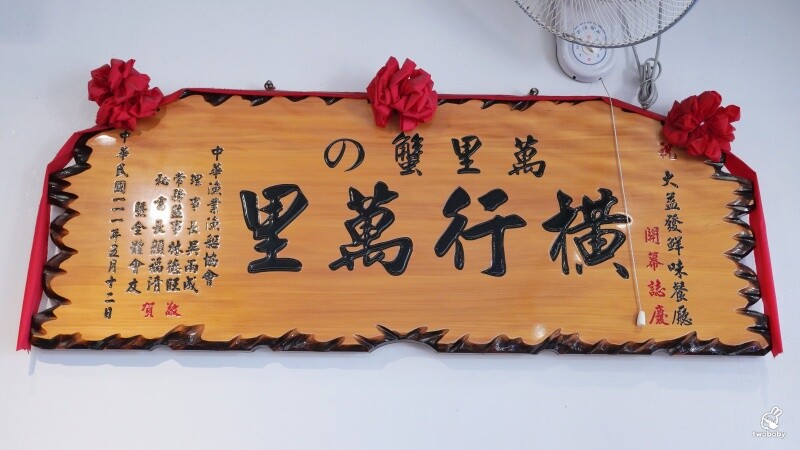 萬里蟹の
橫行萬里
大益發鮮味餐廳
開幕誌慶
中華漁業漁船協會
理事長吳雨成
常務監事林德旺
秘書長顏福清
暨全體會友
敬賀
中華民國一一一年五月十二日
twobaby